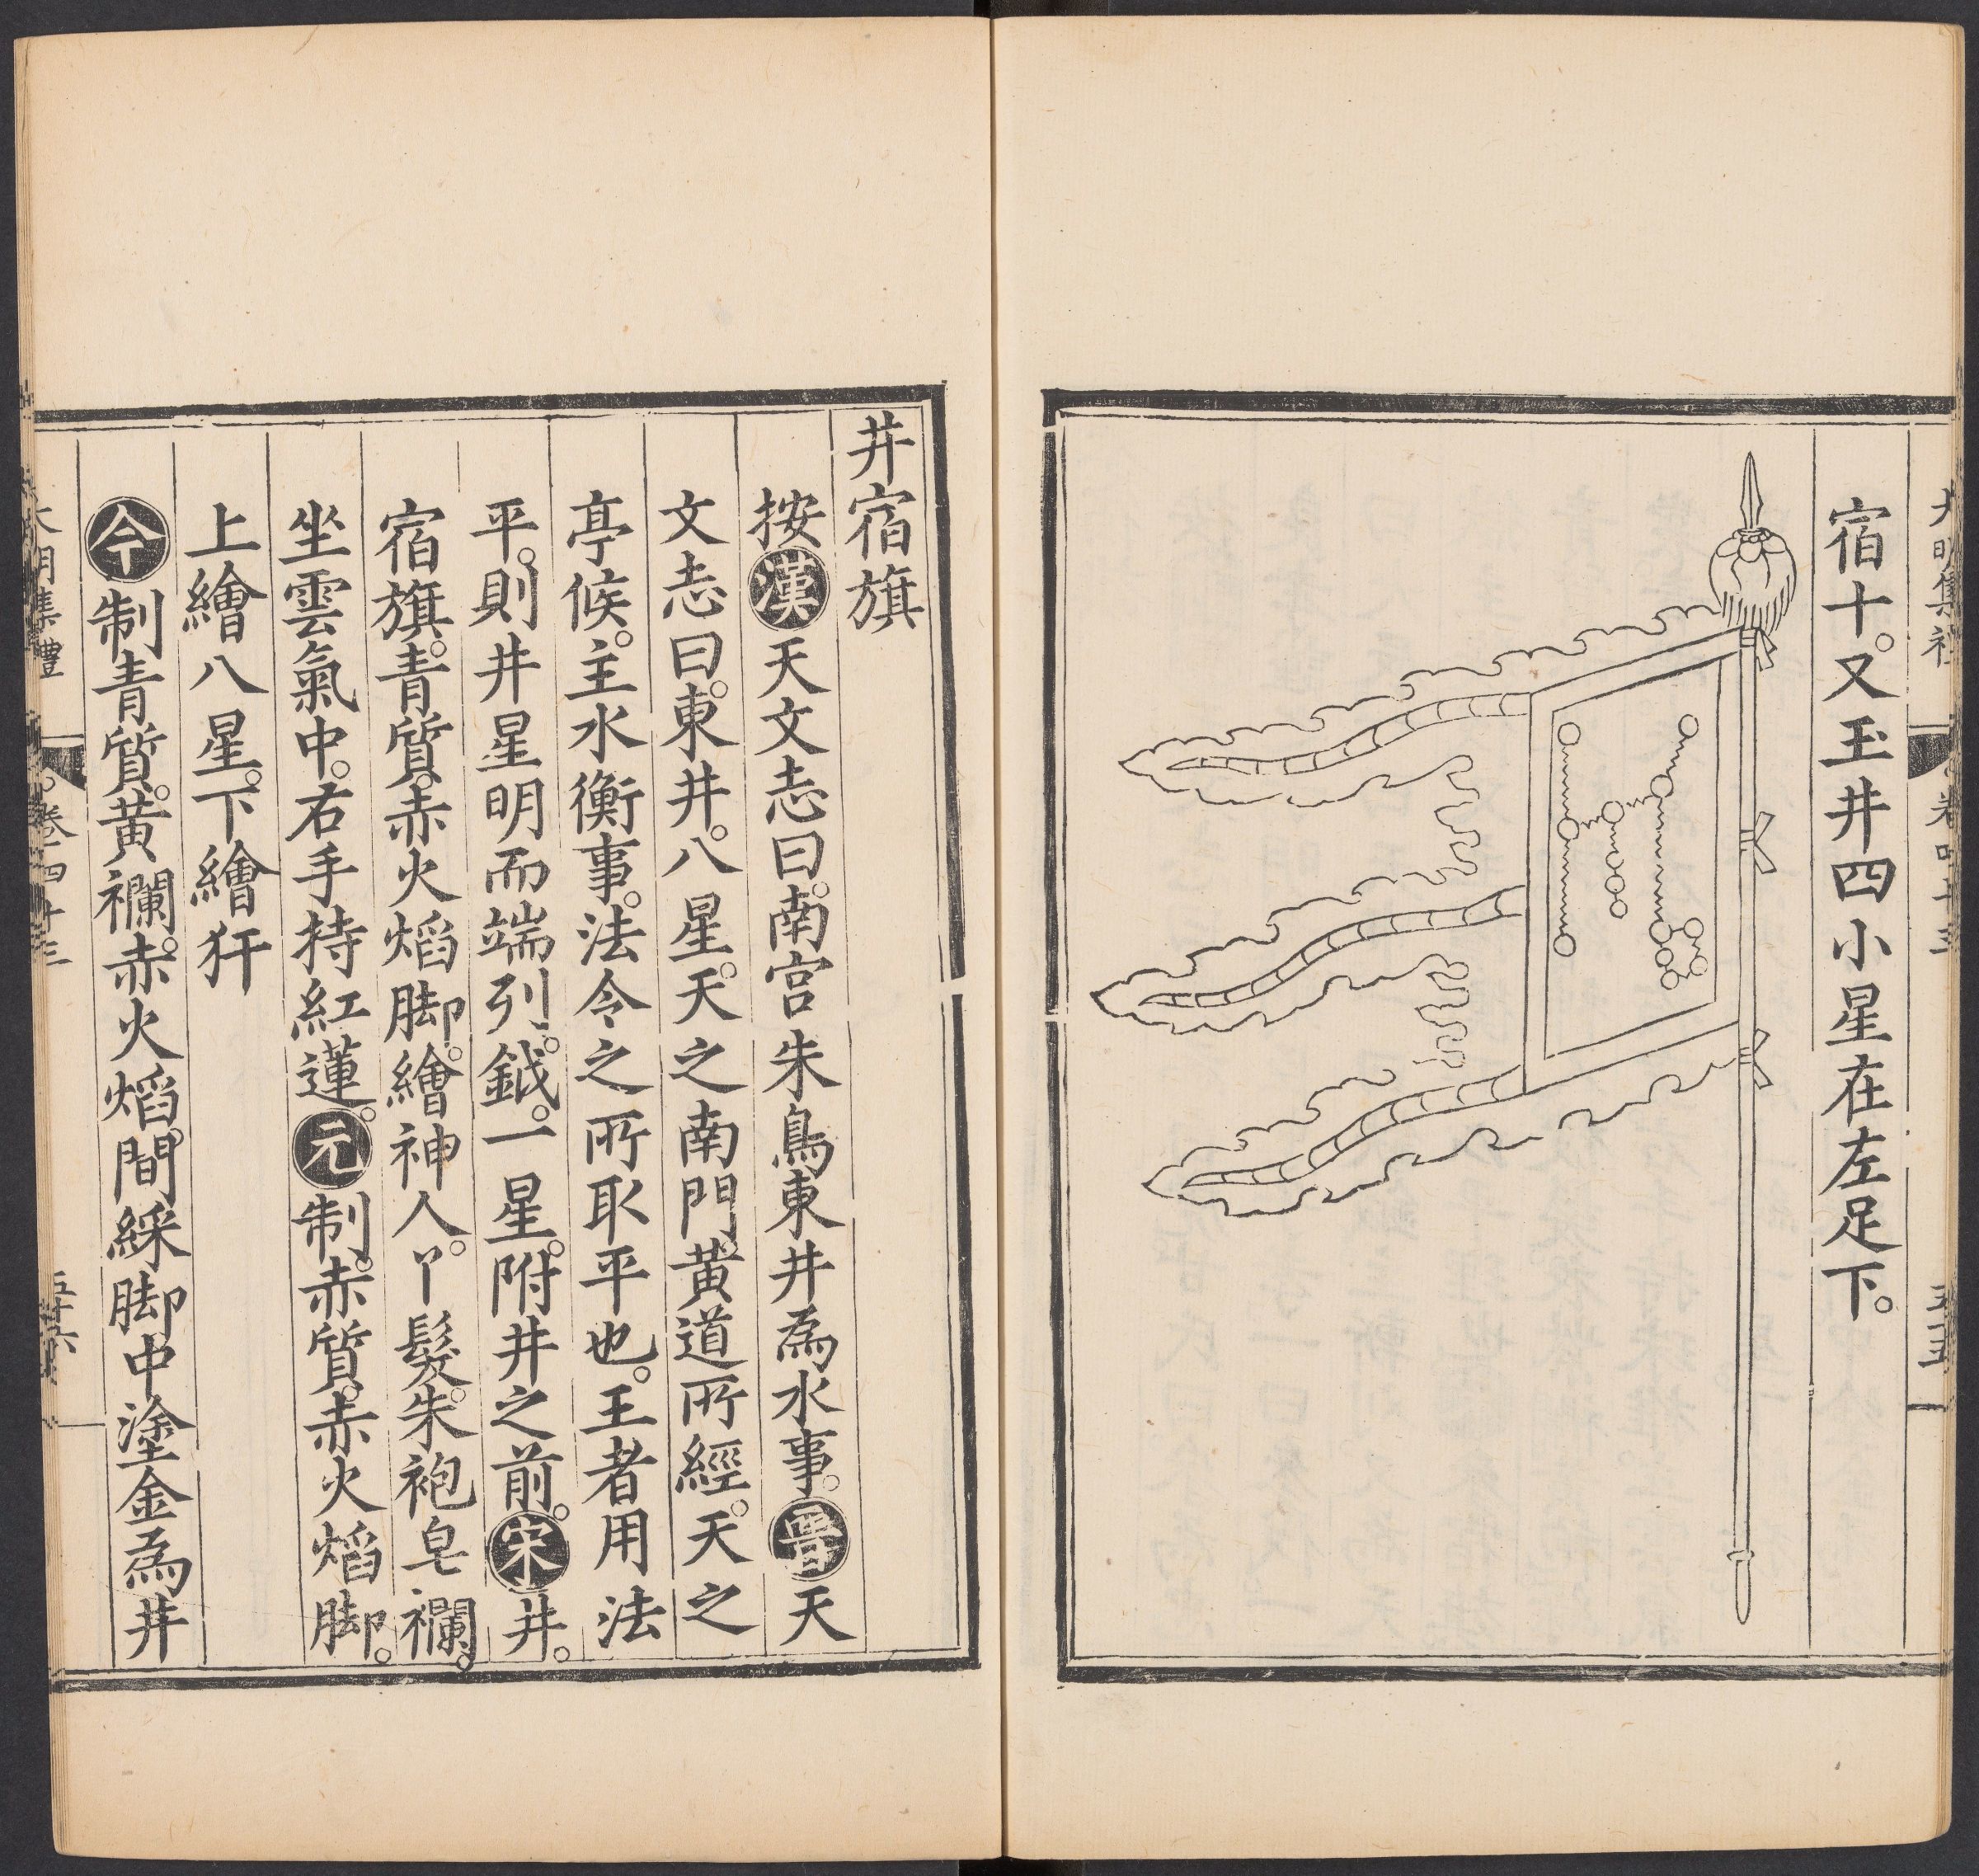 宿十。又玉井四小星在左足下。
井宿旗
按漢天文志曰。南宮朱鳥東井為水事。晋天
文志曰。東井。八星。天之南門。黃道所經。天之
亭候。主水衡事。法令之所取平也。王者用法
平。則井星明而端列。鉞。一星。附井之前。宋井。
宿旗。青質。赤火焰脚。繪神人。丫髮。朱袍皂襴。
坐雲氣中。右手持紅蓮。元制。赤質。赤火焰脚。
上繪八星。下繪犴
今制青質。黃襴。赤火焰。間綵脚中塗金為井
大明集禮 卷四十三 五十六